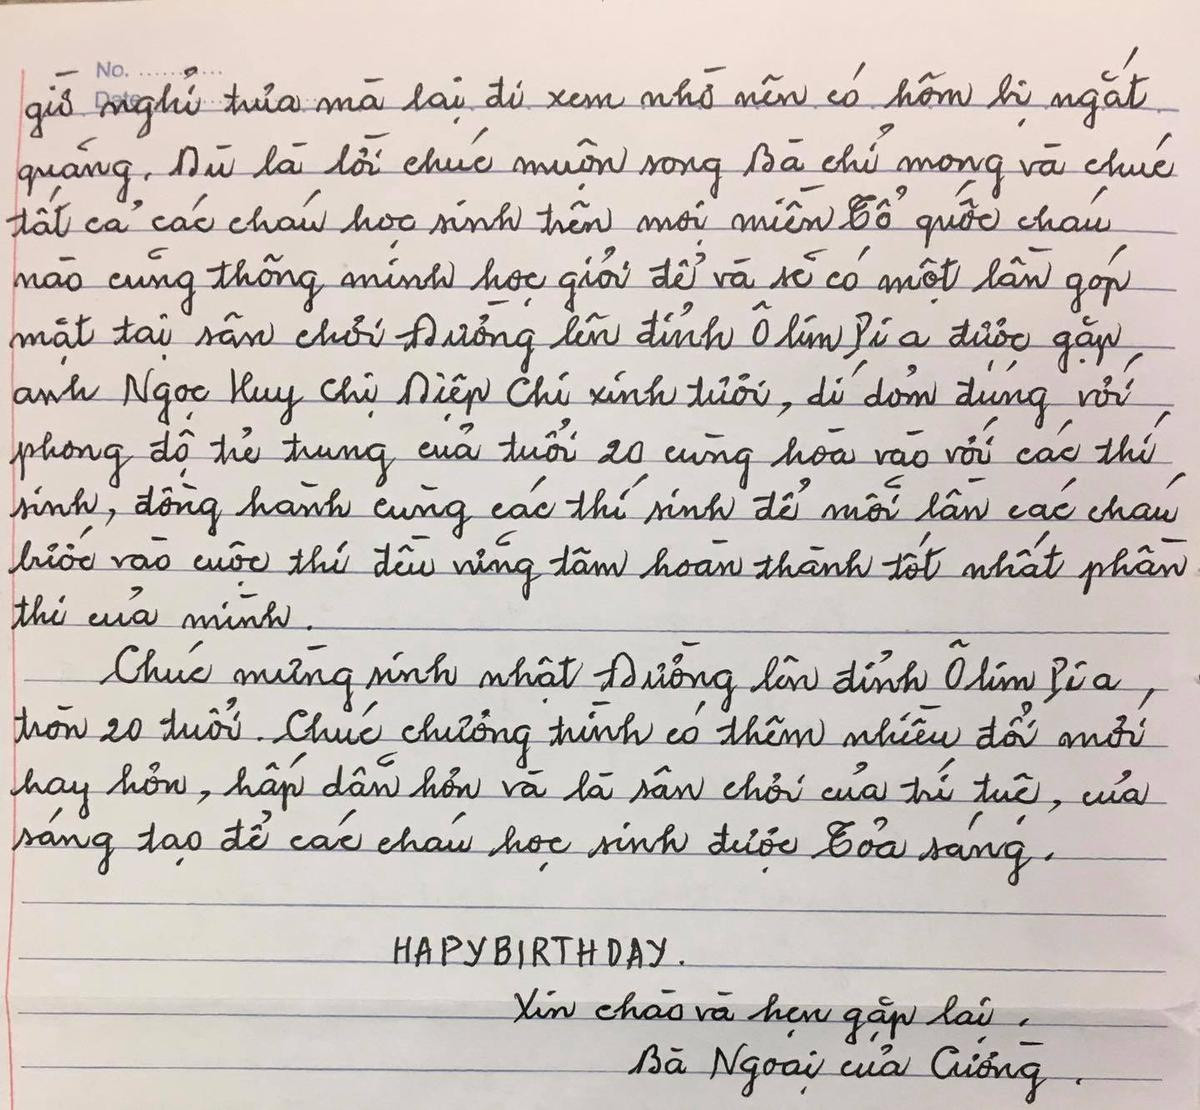 No. ............
Date
giờ nghỉ trưa mà lại đi xem nhờ nên có hôm bị ngắt
quãng. Dù là lời chúc muộn song Bà chỉ mong và chúc
tất cả các cháu học sinh trên mọi miền Tổ quốc cháu
nào cũng thông minh học giỏi để và sẽ có một lần góp
mặt tại sân chơi Đường lên đỉnh Ô lim Pi a được gặp
anh Ngọc Huy Chị Diệp Chi xinh tươi, dí dỏm đúng với
phong độ trẻ trung của tuổi 20 cùng hòa vào với các thí
sinh, đồng hành cùng các thí sinh để mỗi lần các cháu
bước vào cuộc thi đều vững tâm hoàn thành tốt nhất phần
thi của mình.
Chúc mừng sinh nhật Đường lên đỉnh Ô lim Pi a,
tròn 20 tuổi. Chúc chương trình có thêm nhiều đổi mới
hay hơn, hấp dẫn hơn và là sân chơi của trí tuệ, của
sáng tạo để các cháu học sinh được Tỏa sáng.
HAPYBIRTHDAY.
Xin chào và hẹn gặp lại.
Bà Ngoại của Cường.